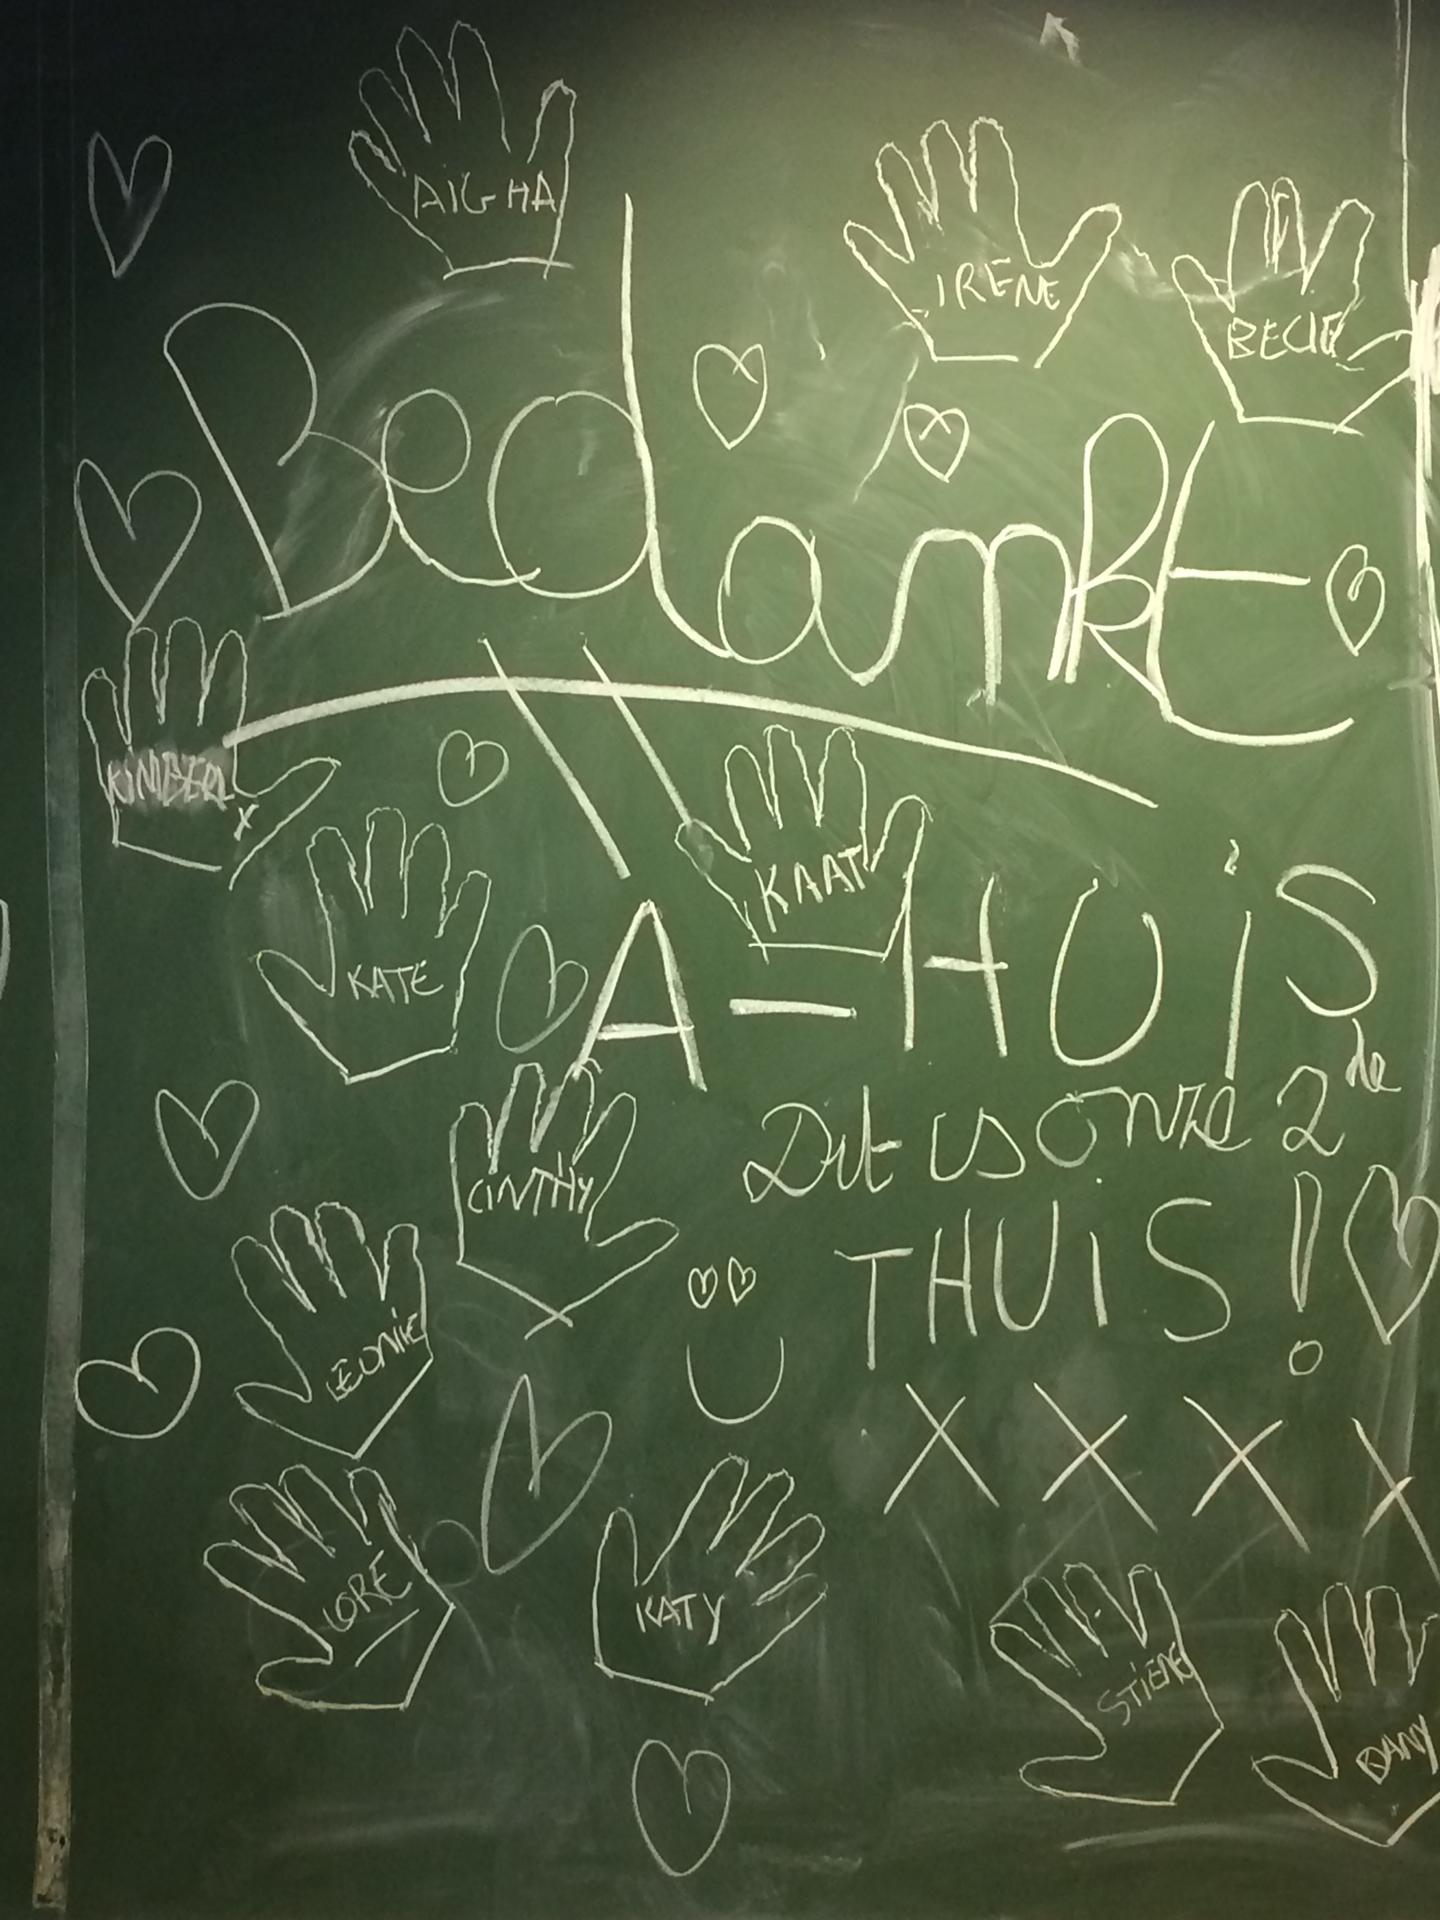 AIGHA
IRENE
BECIE
Bedankt
KIMBERL
x
KAAT
KATE
A-HUiS
Dit is onze 2de
CINTHY
THUiS!
LEONIE
X X X X
LORE
KATY
STIENE
DANY